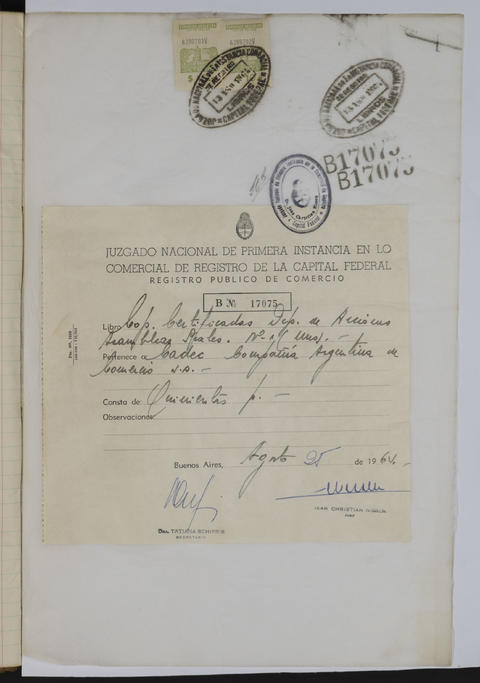 B17075
B17075
JUZGADO NACIONAL DE PRIMERA INSTANCIA EN LO
COMERCIAL DE REGISTRO DE LA CAPITAL FEDERAL
REGISTRO PUBLICO DE COMERCIO
B № 17075
Libro Cop. Certificados Dep. de Acciones
Asambleas Grales. Nº 1 (Uno).-
Pertenece a Cadec Compañía Argentina de
Comercio S.A.-
Consta de: Quinientos p.-
Observaciones:
Buenos Aires, Agosto 25 de 1964.-
Dra. TATIANA SCHIFRIS
SECRETARIA
JEAN CHRISTIAN NISSEN
JUEZ